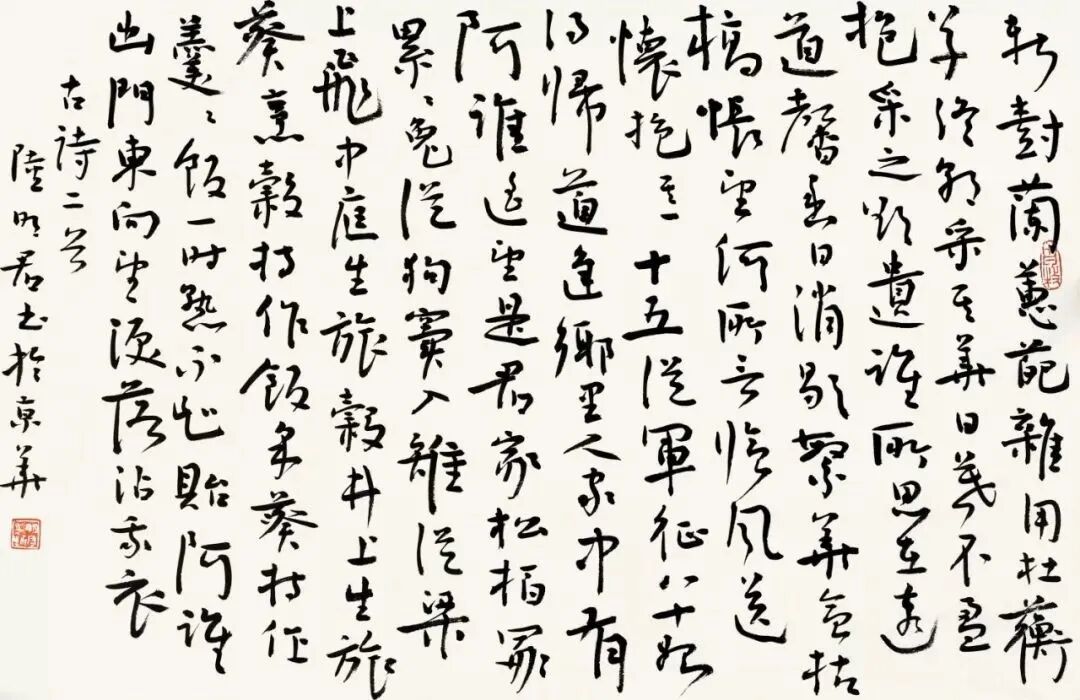 新樹蘭蕙葩雜用杜蘅
草終朝采其華日暮不盈
抱采之欲遺誰所思在遠
道馨香日消歇繁華會枯
槁悵望何所言臨風送
懷抱其一十五從軍征八十始
得歸道逢鄉里人家中有
阿誰遙望是君家松柏冢
累々兔從狗竇入雉從梁
上飛中庭生旅穀井上生旅
葵烹穀持作飯采葵持作
羹々飯一時熟不知貽阿誰
出門東向望淚落沾我衣
古詩二首
陸明君書於京華